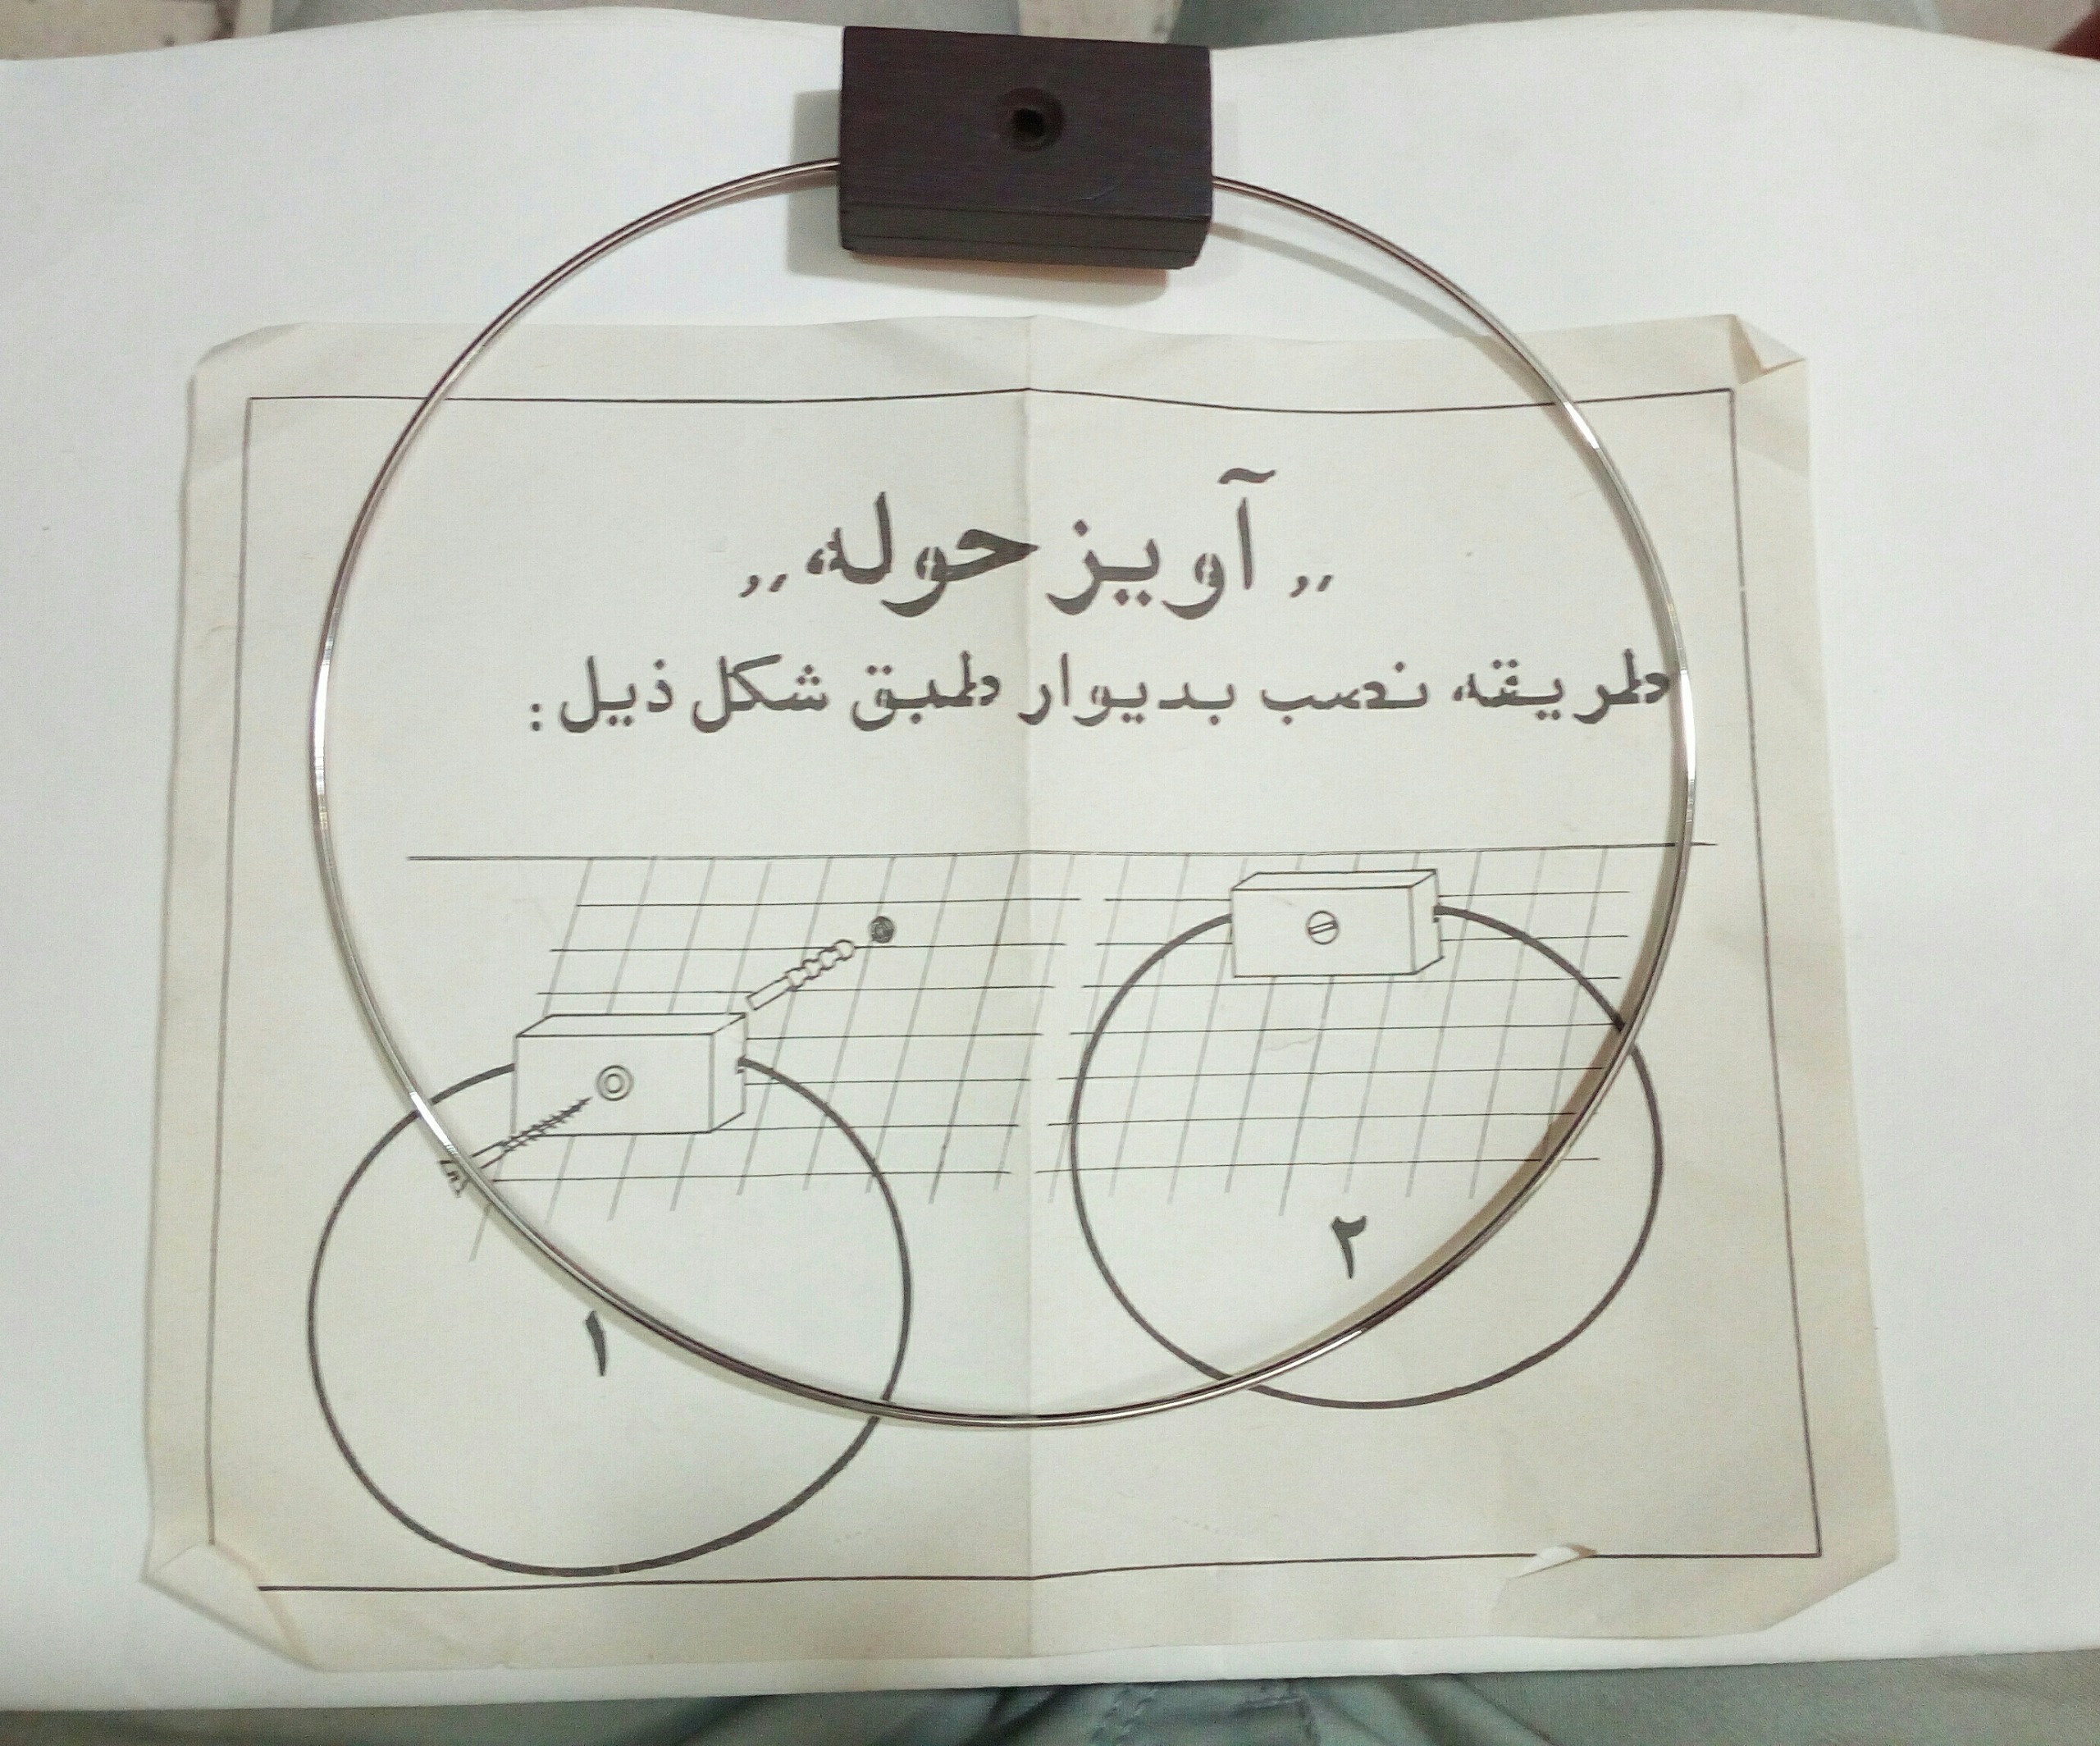 ,, آویز حوله ,,
طریقه نصب بدیوار طبق شکل ذیل:
۱
۲